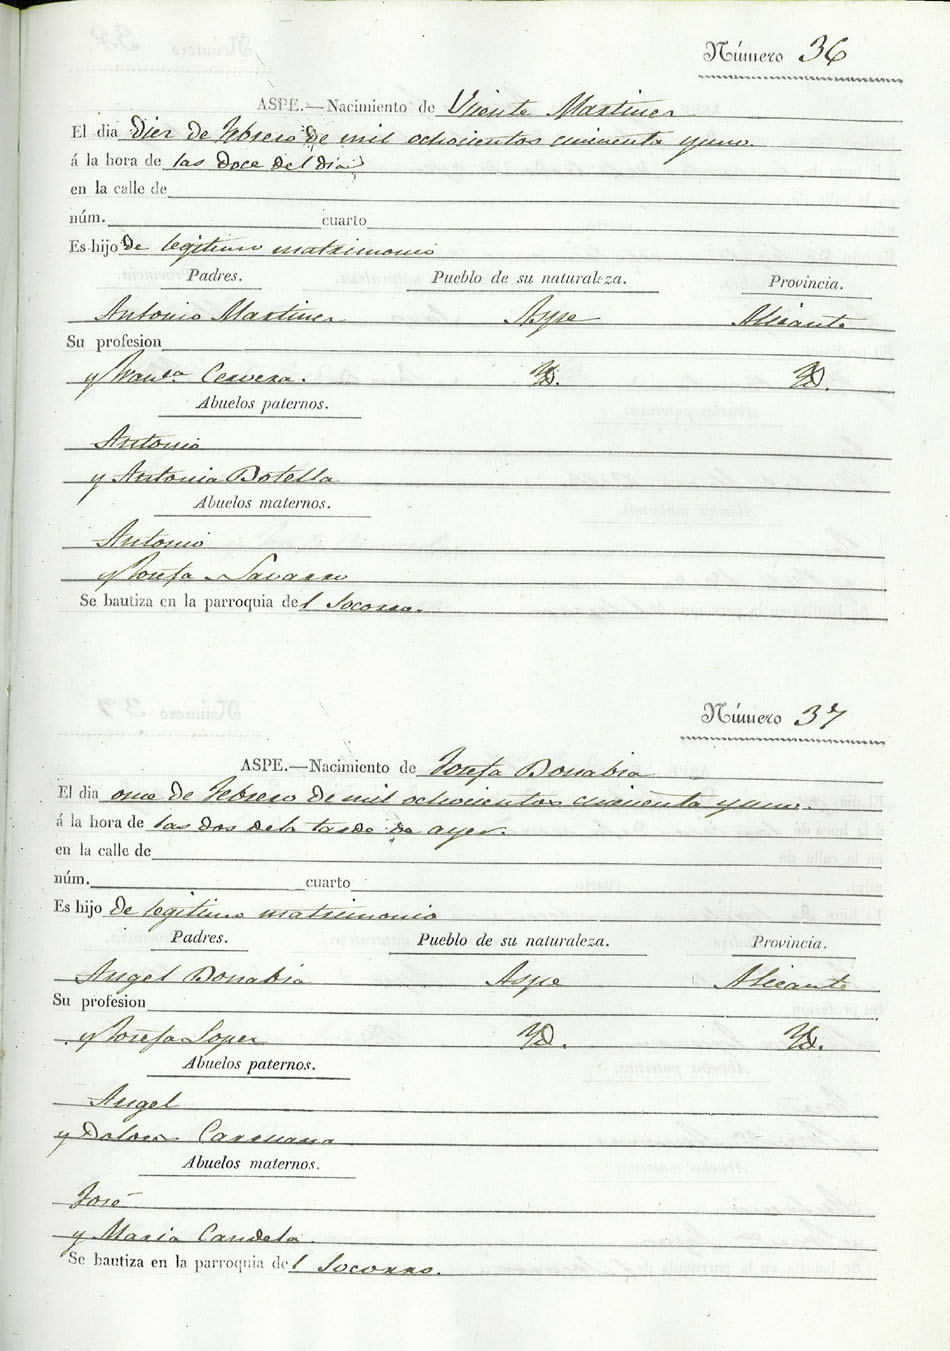 Número 36
ASPE.—Nacimiento de Vicente Martinez
El dia diez de Febrero de mil ochocientos cincuenta y uno.
á la hora de las doce del dia
en la calle de
núm. cuarto
Es hijo de legitimo matrimonio
Padres. Pueblo de su naturaleza. Provincia.
Antonio Martinez Aspe Alicante
Su profesion
y Franca Cervera. Yd. Yd.
Abuelos paternos.
Antonio
y Antonia Botella
Abuelos maternos.
Antonio
y Josefa Navarro
Se bautiza en la parroquia del Socorro.
Número 37
ASPE.—Nacimiento de Josefa Bonabia
El dia once de Febrero de mil ochocientos cincuenta y uno.
á la hora de las dos de la tarde de ayer.
en la calle de
núm. cuarto
Es hijo de legitimo matrimonio
Padres. Pueblo de su naturaleza. Provincia.
Angel Bonabia Aspe Alicante
Su profesion
y Josefa Lopez Yd. Yd.
Abuelos paternos.
Angel
y Dolores Caruana
Abuelos maternos.
José
y Maria Candela.
Se bautiza en la parroquia del Socorro.